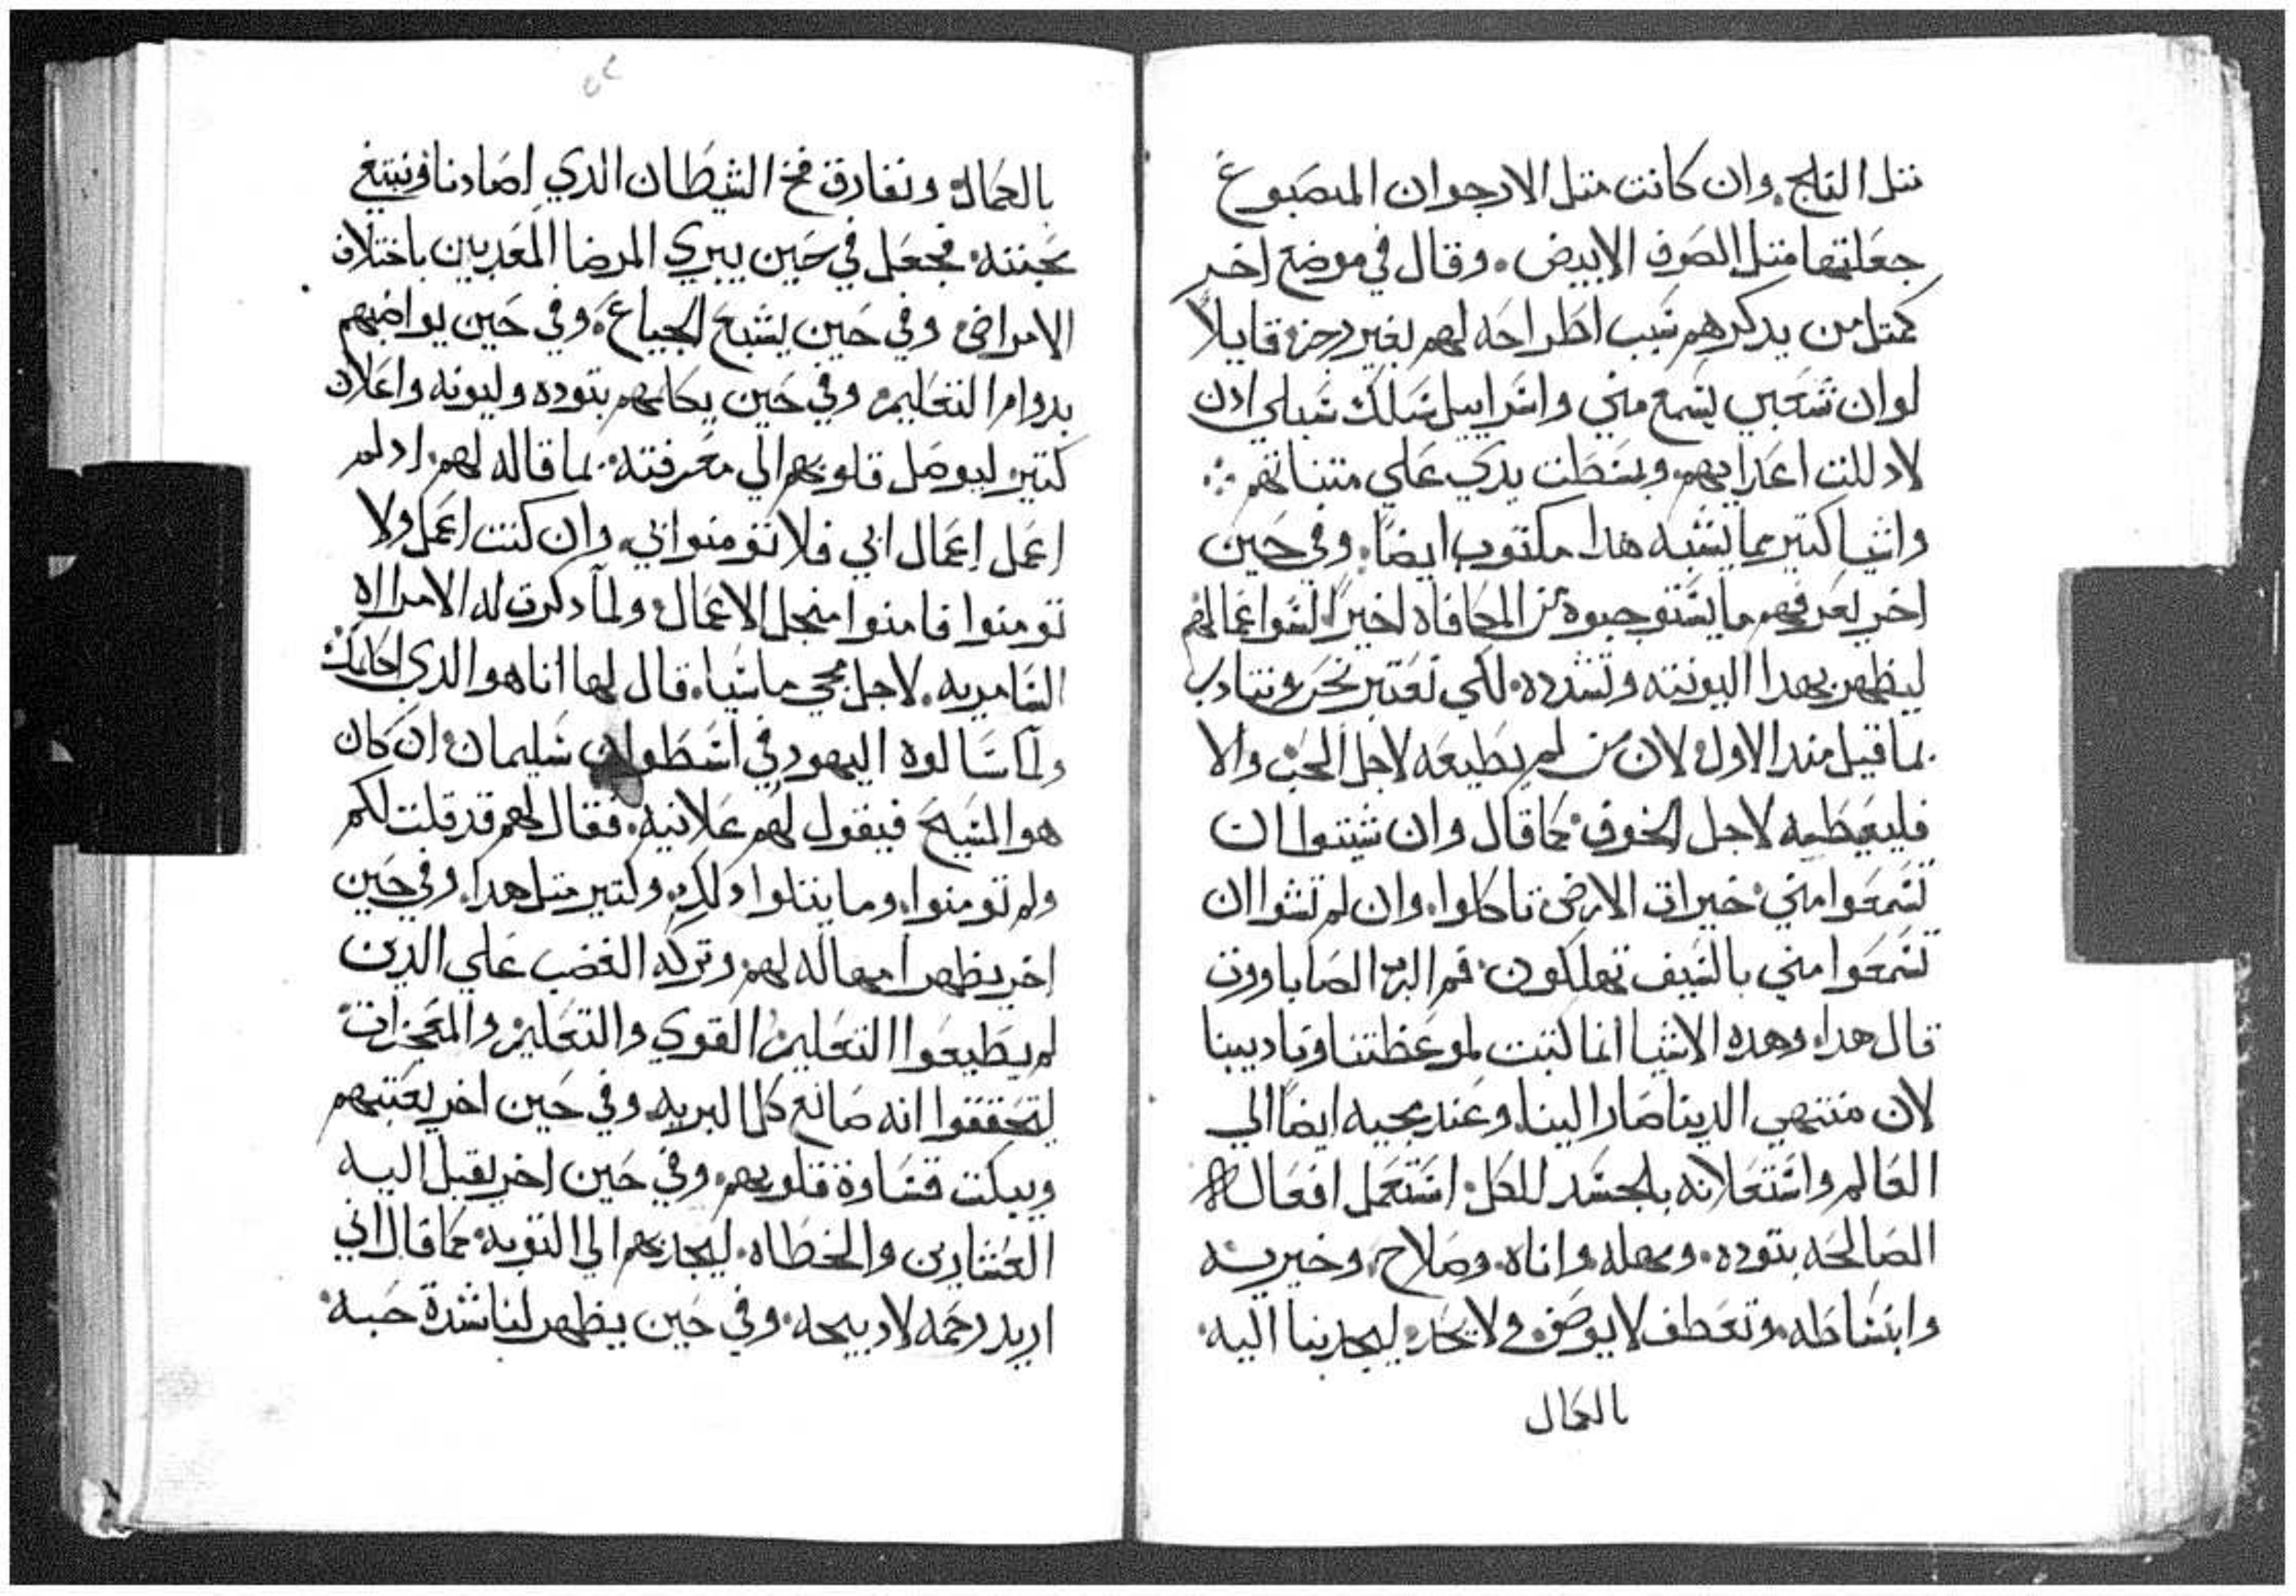 متل التلج. وان كانت متل الارجوان المصبوغ
جعلتها متل الصوف الابيض. وقال في موضع اخر
كمتل من يدكرهم سبب اطراحه لهم بغير رجزه قايلاً
لو ان شعبي يسمع مني واسراييل سلك سبلي ادن
لاد للت اعدايهم. وبسطت يدي علي متبناتهم
واشيا كتير مما يشبه هدا مكتوب ايضاً. وفي حين
اخر يعرفهم ما يستوجبوه من المجافاه اخيراً لسو اعمالهم
ليظهر بهدا اليونته وتشدده. لكي نعتبر نحن ونتادب
بما قيل مند الاول. لان من لم يطيعه لاجل الحب والا
فليعطيه لاجل الخوف. كما قال وان شيتوا ان
تسمعوا مني خيرات الارض تاكلوا. وان لم تشوا ان
تسمعوا مني بالسيف تهلكون. فم الرب الصاباووت
قال هدا. وهده الاشيا انما كتبت لموعظتنا وتاديبنا
لان منتهي الدينا صار الينا. وعند مجيه ايضاً الي
العالم واستعلانه بالجسد للكل. استعمل افعاله
الصالحه بتوده. ومهله. واناه. وصلاح. وخيريه
وابتساطه. وتعطف لا يوصف ولا يحد. ليجدبنا اليه
بالكمال
بالكمال ونفارق فخ الشيطان الدي اصادنا ونبتغ
محبته. فجعل في حين يبري المرضا المعدبين باختلاف
الامراض وفي حين يشبع الجياع. وفي حين يواضبهم
بدوام التعليم. وفي حين يكلمهم بتوده وليونه واعلان
كتير ليوصل قلوبهم الي معرفته. بما قاله لهم. اد لم
اعمل اعمال ابي فلا تومنوا بي. وان كنت اعمل ولا
تومنوا فامنوا من جل الاعمال. ولما دكرت له الامراه
السامريه. لاجل مجي ماسيا. قال لها انا هو الدي اكلمك
ولما سالوه اليهود في اسطوان سليمان. ان كان
هو المسيح فيقول لهم علانيه. فقال لهم قد قلت لكم
ولم تومنوا. وما يتلوا دلك. وكتير متل هدا. وفي حين
اخر يظهر امهاله لهم. وتركه الغضب علي الدين
لم يطيعوا التعليم القوي والتعليم والمعجزات
ليتحققوا انه صانع كل البريه. وفي حين اخر يعتبهم
ويبكت قساوة قلوبهم. وفي حين اخر يقبل اليه
العشارين والخطاه. ليجدبهم الي التوبه. كما قال اني
اريد رحمه لا دبيحه. وفي حين يظهر لنا شدة حبه